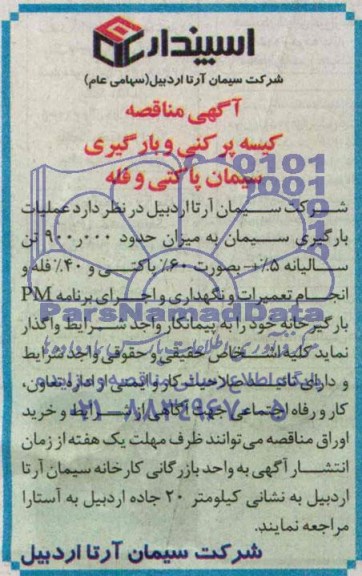 اسپندار
شرکت سیمان آرتا اردبیل(سهامی عام)
آگهی مناقصه
کیسه پرکنی و بارگیری
سیمان پاکتی و فله
شرکت سیمان آرتا اردبیل در نظر دارد عملیات
بارگیری سیمان به میزان حدود ۹۰۰٫۰۰۰ تن
سالیانه ۵٪± بصورت ۶۰٪ پاکتی و ۴۰٪ فله و
انجام تعمیرات و نگهداری و اجرای برنامه PM
بارگیرخانه خود را به پیمانکار واجد شرایط واگذار
نماید کلیه اشخاص حقیقی و حقوقی واجد شرایط
و دارای تائیدیه صلاحیت کار و ایمنی از اداره تعاون،
کار و رفاه اجتماعی جهت آگاهی از شرایط و خرید
اوراق مناقصه می‌توانند ظرف مهلت یک هفته از زمان
انتشار آگهی به واحد بازرگانی کارخانه سیمان آرتا
اردبیل به نشانی کیلومتر ۲۰ جاده اردبیل به آستارا
مراجعه نمایند.
شرکت سیمان آرتا اردبیل
ParsNamadData
۰۲۱-۸۸۳۴۹۶۷۰-۵